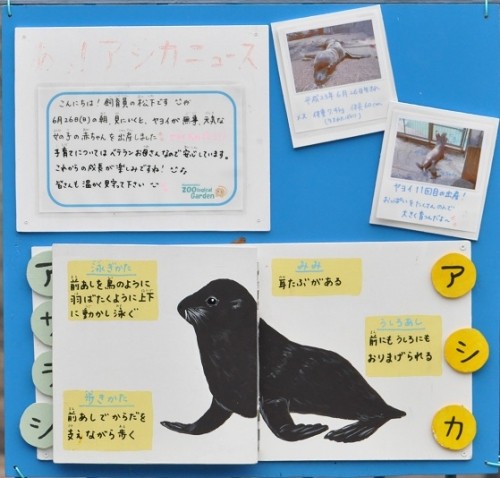 あ！アシカニュース
こんにちは！飼育員の松下です
6月26日(日)の朝、見にいくと、ヤヨイが無事、元気な
女の子の赤ちゃんを出産しました
子育てについてはベテランお母さんなので安心しています。
これからの成長が楽しみですね！
皆さんも温かく見守て下さい
ZOOlogical
Garden
平成23年6月26日生まれ
メス 体重7.9kg 体長60cm
ヤヨイ11回目の出産！
おっぱいをたくさんのんで
大きく育つんだよ〜
アザラシ
泳ぎかた
前あしを鳥のように
羽ばたくように上下
に動かし泳ぐ
歩きかた
前あしでからだを
支えながら歩く
みみ
耳たぶがある
うしろあし
前にもうしろにも
おりまげられる
アシカ